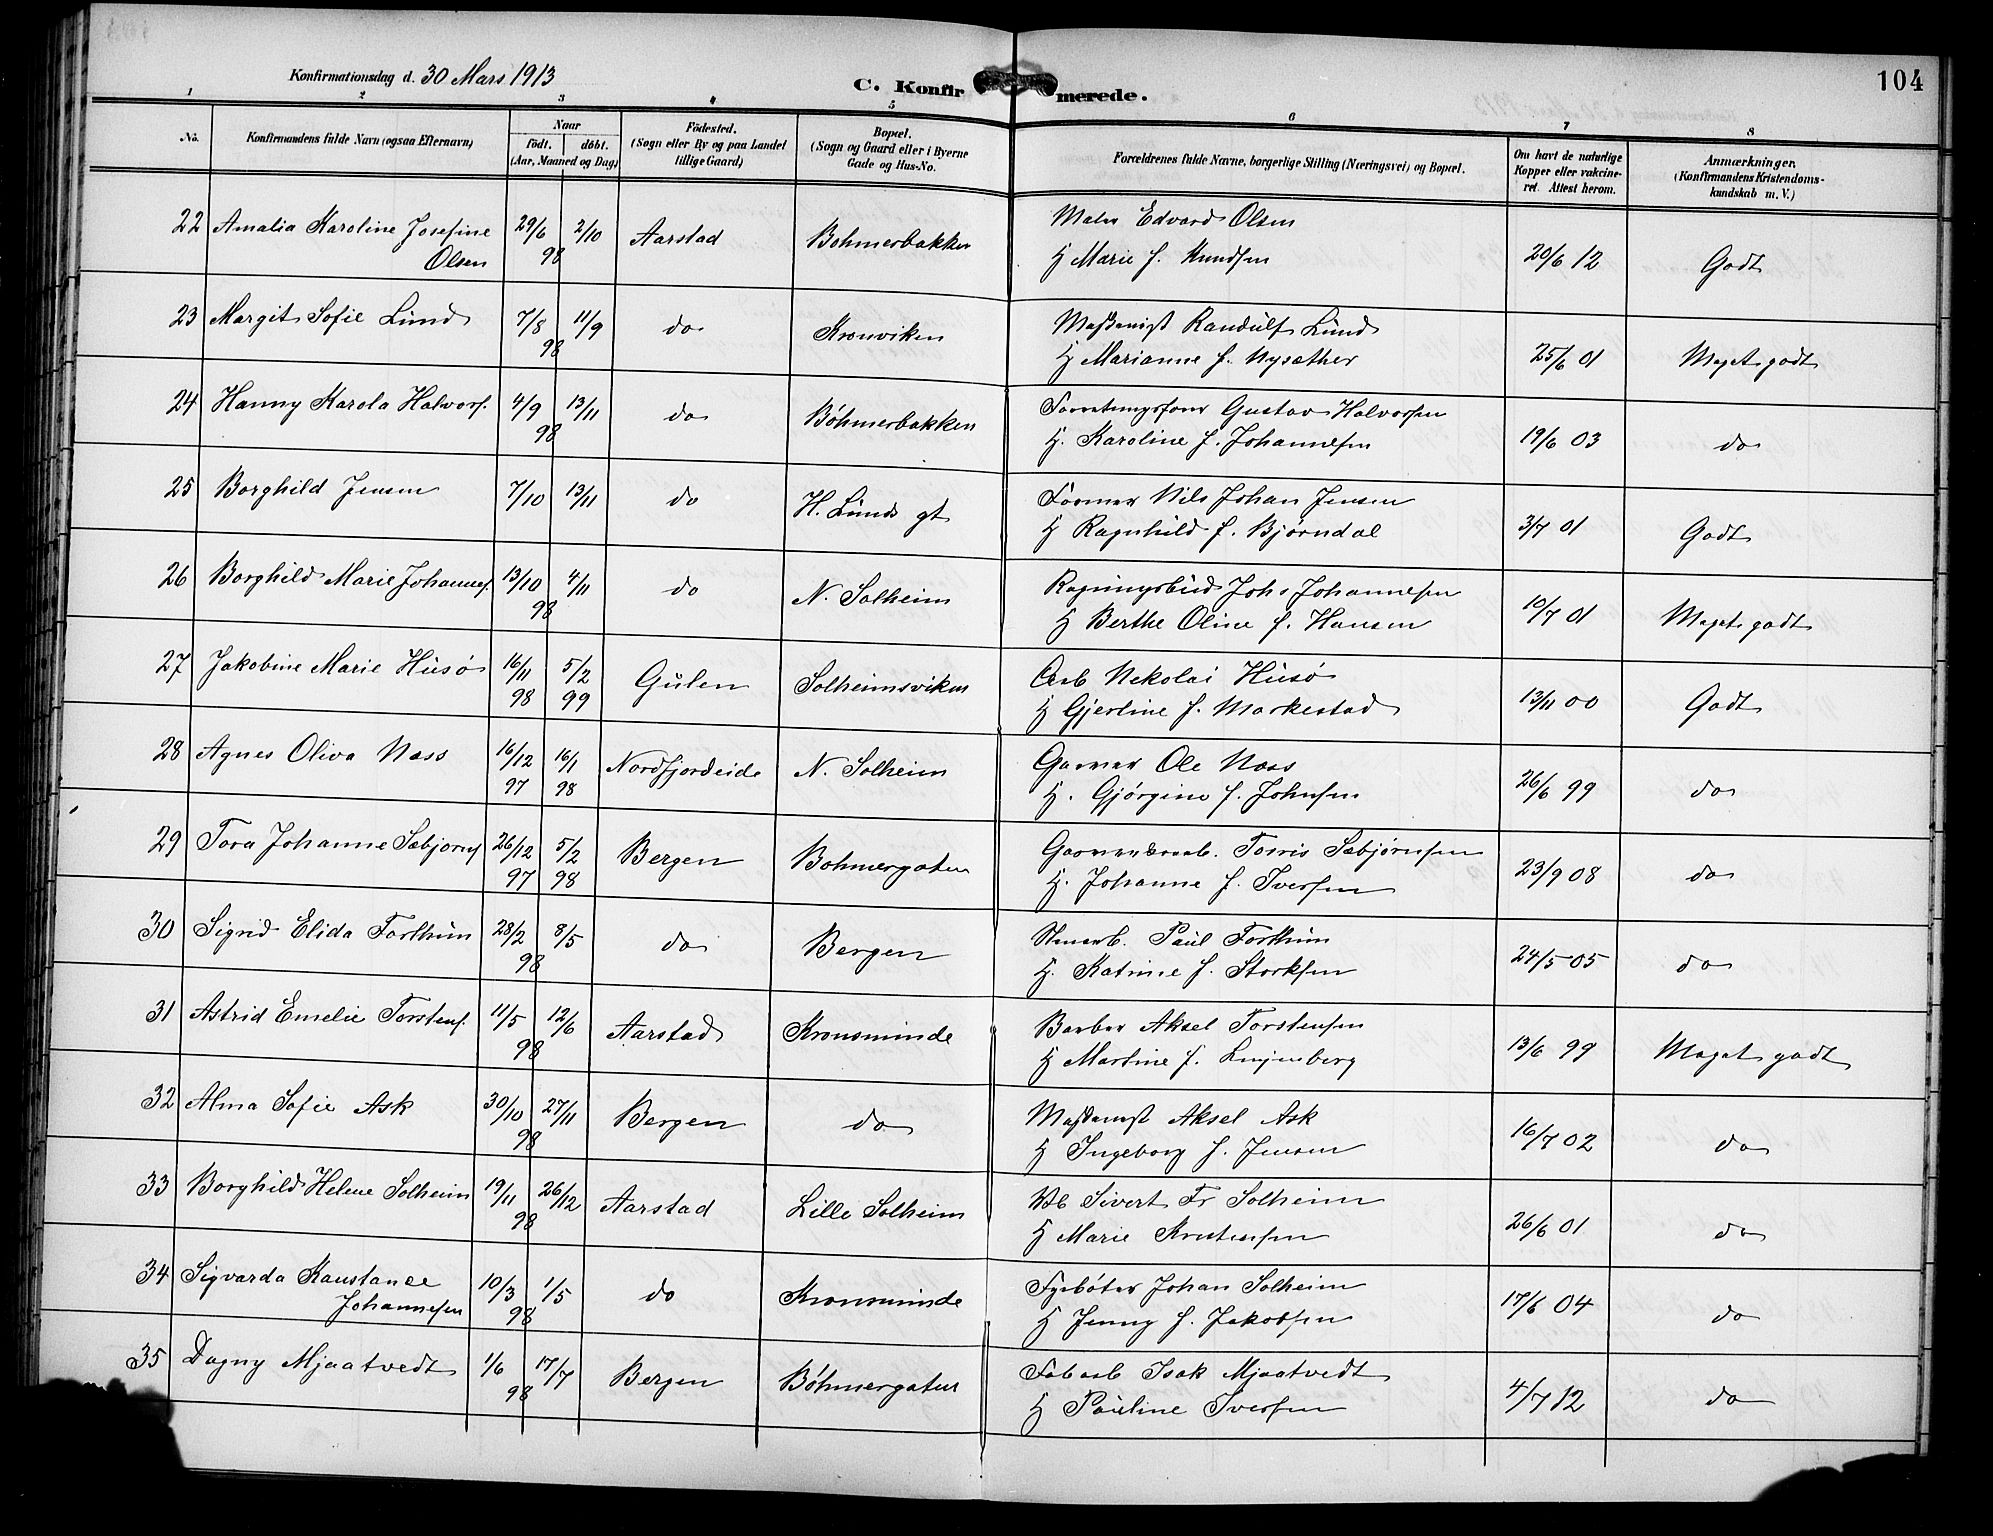 Konfirmationsdag d. 30 Mars 1913
C. Konfirmerede.
104
1 2 3 4 5 6 7 8
No. Konfirmandens fulde Navn (ogsaa Efternavn) Naar födt. döbt. (Aar, Maaned og Dag) Födested. (Sogn eller By og paa Landet tillige Gaard) Bopæl. (Sogn og Gaard eller i Byerne Gade og Hus-No. Forældrenes fulde Navne, borgerlige Stilling (Næringsvei) og Bopæl. Om havt de naturlige Kopper eller vakcineret. Attest herom. Anmærkninger. (Konfirmandens Kristendomskundskab m. V.)
22 Amalia Karoline Josefine 29/6 2/10 Aarstad Bohmerbakken Maler Edvard Olsen 20/6 12 Godt
Olsen 98 H Marie f. Knudsen
23 Margit Sofie Lund 7/8 11/9 do Kronviken Randulf Lund 25/6 01 Meget godt
98 H Marianne f. Nysæther
24 Hanny Karola Halvors. 4/9 13/11 do Böhmerbakken Gustav Halvorsen 19/6 03 do
98 H. Karoline f. Johannesen
25 Borghild Jensen 7/10 13/11 do H. Lunds gt Former Nils Johan Jensen 3/7 01 Godt
H Ragnhild f. Bjørndal
26 Borghild Marie Johannes. 13/10 4/11 do N. Solheim Regningsbud Johs Johannesen 10/7 01 Meget godt
98 H Berthe Oline f. Hansen
27 Jakobine Marie Husø 16/11 5/2 Gulen Solheimsviken Arb Nekolai Husø 13/11 00 Godt
98 99 H Gjertine f. Markestad
28 Agnes Oliva Næss 16/12 16/1 Nordfjordeide N. Solheim Garver Ole Næss 26/6 99 do
97 98 H. Gjørgine f. Johnsen
29 Tora Johanne Sæbjørns 26/12 5/2 Bergen Bohmergaten Sæbjørnsen 23/9 08 do
97 98 H. Johanne f. Iversen
30 Sigrid Elida Forthun 28/2 8/5 do Bergen Paul Forthun 24/5 05 do
98 H. Katrine f. Storksen
31 Astrid Emelie Torstens. 11/5 12/6 Aarstad Kronsminde Barber Aksel Torstensen 13/6 99 Meget godt
98 H Martine f.
32 Alma Sofie Ask 30/10 27/11 Bergen do Aksel Ask 16/7 02 do
98 H Ingeborg f. Jensen
33 Borghild Helene Solheim 19/11 26/12 Aarstad Lille Solheim Sivert Fr Solheim 26/6 01 do
98 H Marie Kristensen
34 Sigvarda Konstance 10/3 1/5 do Kronsminde Fyrbøter Johan Solheim 17/6 04 do
Johannesen 98 H Jenny f. Jakobsen
35 Dagny Mjaatvedt 1/6 17/7 Bergen Böhmergaten Fabarb Isak Mjaatvedt 4/7 12 do
98 H Pauline Iversen